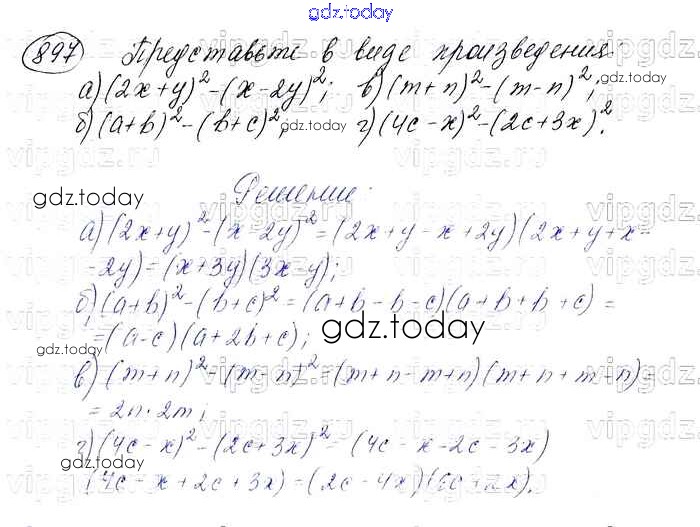 gdz.today
897 Представьте в виде произведения:
а) (2x+y)²-(x-2y)²; в) (m+n)²-(m-n)²; gdz.today
б) (a+b)²-(b+c)²; gdz.today г) (4c-x)²-(2c+3x)².
gdz.today Решение:
а) (2x+y)²-(x-2y)²=(2x+y-x+2y)(2x+y+x-
-2y)=(x+3y)(3x-y);
б) (a+b)²-(b+c)²=(a+b-b-c)(a+b+b+c)=
gdz.today =(a-c)(a+2b+c); gdz.today
в) (m+n)²-(m-n)²=(m+n-m+n)(m+n+m-n)=
=2n·2m;
г) (4c-x)²-(2c+3x)²=(4c-x-2c-3x)
gdz.today gdz.today
(4c-x+2c+3x)=(2c-4x)(6c+2x).
vipgdz.ru